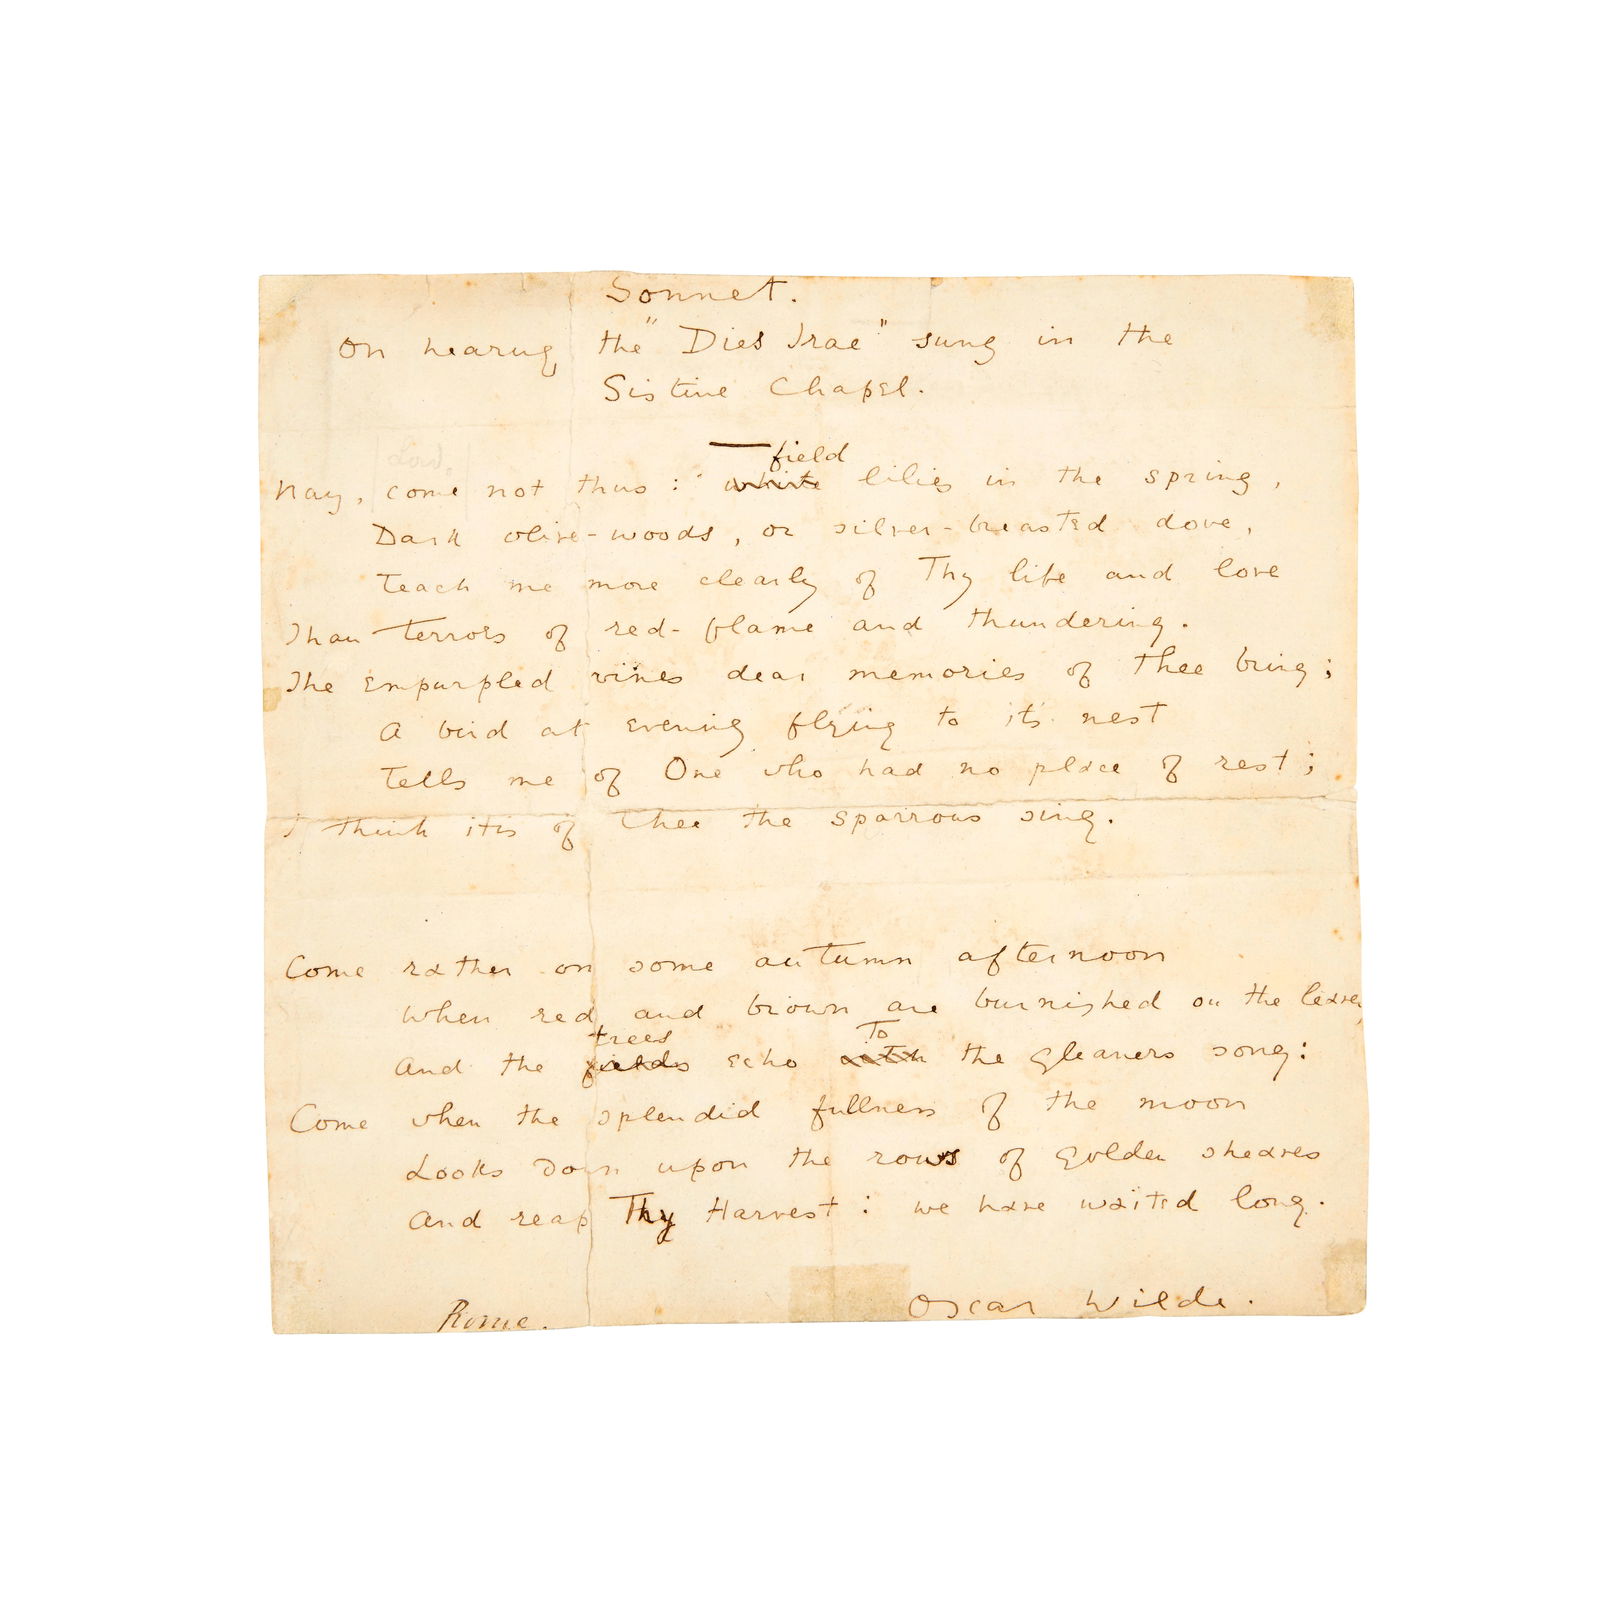 Sonnet.
On hearing the "Dies Irae" sung in the
Sistine Chapel.
field
Nay, come not thus: white lilies in the spring,
Dark olive-woods, or silver-breasted dove,
Teach me more clearly of Thy life and love
Than terrors of red-flame and thundering.
The empurpled vines dear memories of Thee bring;
A bird at evening flying to its nest
Tells me of One who had no place of rest;
I think it is of Thee the sparrows sing.
Come rather on some autumn afternoon
When red and brown are burnished on the leaves
trees To
And the fields echo with the gleaners song:
Come when the splendid fullness of the moon
Looks down upon the rows of golden sheaves
And reap Thy Harvest: we have waited long.
Rome. Oscar Wilde.